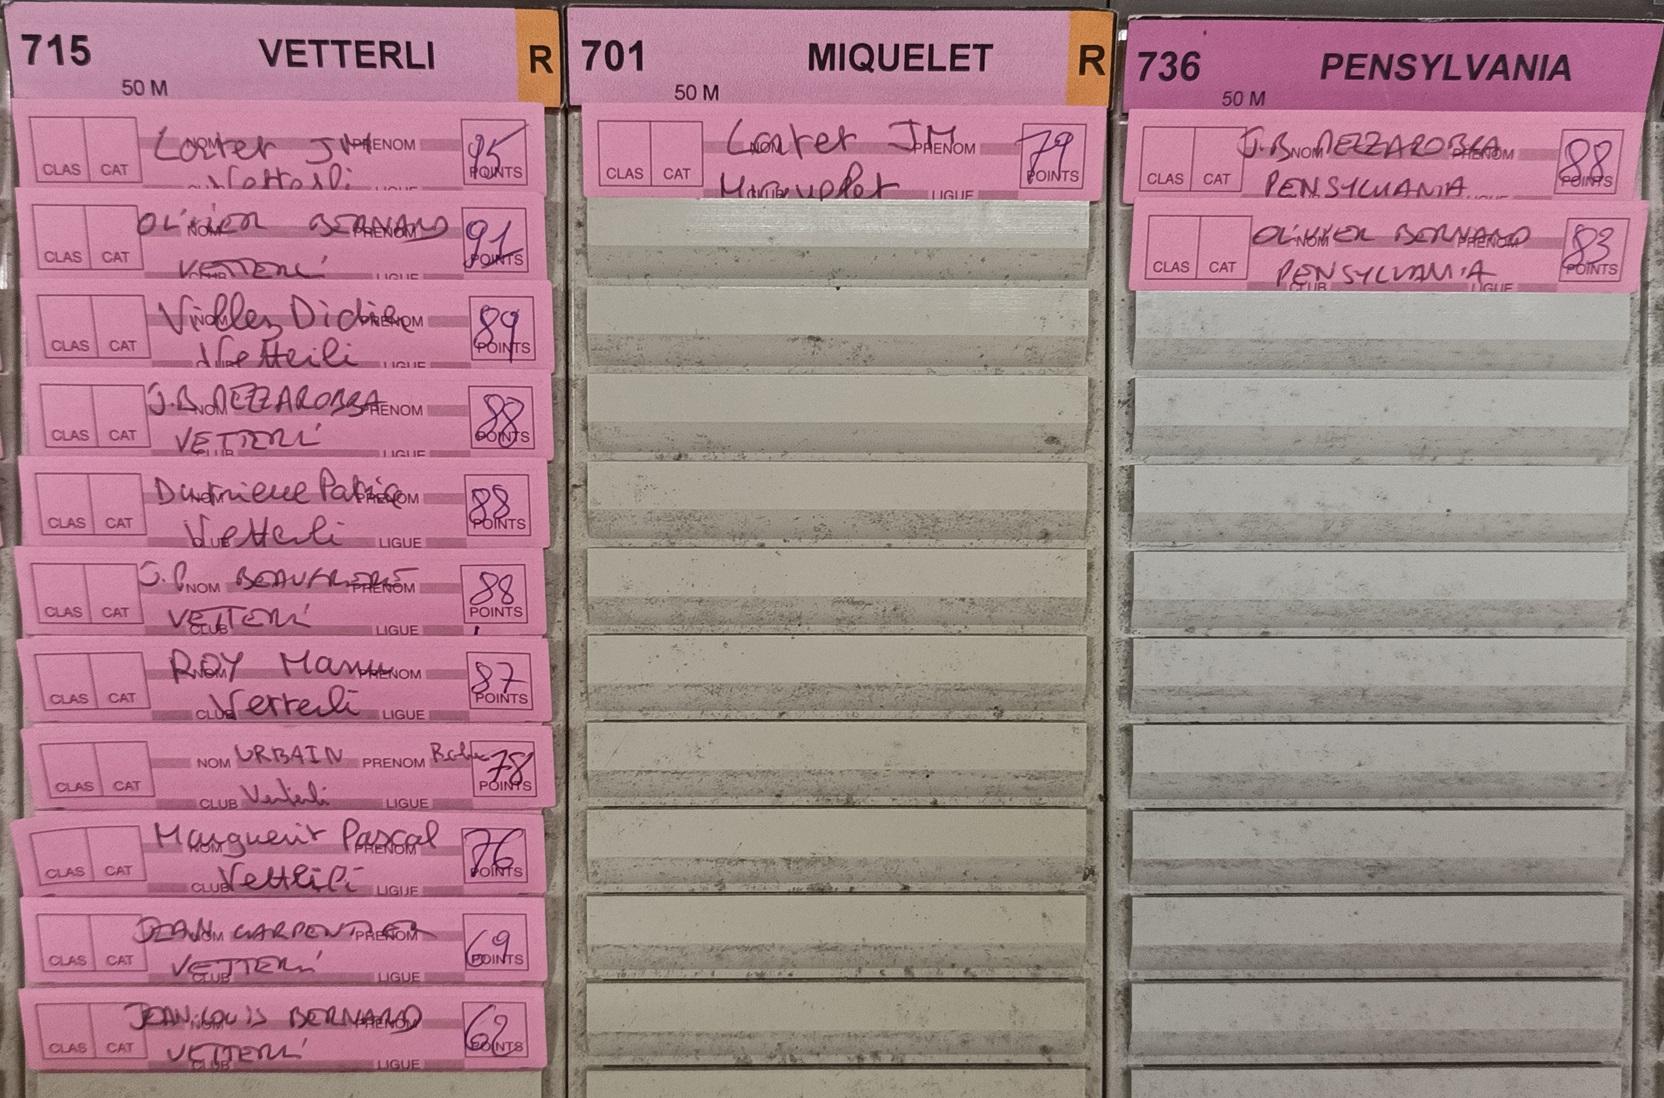 715 VETTERLI R
50 M
CLAS CAT NOM Lortet JM PRENOM 95 POINTS
Vetterli LIGUE
CLAS CAT NOM OLIVIER BERNARD PRENOM 91 POINTS
VETTERLI LIGUE
CLAS CAT NOM Didier PRENOM 89 POINTS
Vetterli LIGUE
CLAS CAT NOM J.B. MEZZAROBBA PRENOM 88 POINTS
CLUB VETTERLI LIGUE
CLAS CAT NOM Patrice PRENOM 88 POINTS
CLUB Vetterli LIGUE
CLAS CAT NOM J.P. BEAUFRERE PRENOM 88 POINTS
CLUB VETTERLI LIGUE
CLAS CAT NOM ROY Manu PRENOM 87 POINTS
CLUB Vetterli LIGUE
CLAS CAT NOM URBAIN PRENOM 78 POINTS
CLUB Vetterli LIGUE
CLAS CAT NOM Marguerit Pascal PRENOM 76 POINTS
CLUB Vetterli LIGUE
CLAS CAT NOM JEAN CARPENTIER PRENOM 69 POINTS
CLUB VETTERLI LIGUE
CLAS CAT NOM JEAN-LOUIS BERNARD PRENOM 62 POINTS
CLUB VETTERLI LIGUE
701 MIQUELET R
50 M
CLAS CAT NOM Lortet JM PRENOM 79 POINTS
LIGUE
736 PENSYLVANIA
50 M
CLAS CAT NOM J.B. MEZZAROBBA PRENOM 88 POINTS
PENSYLVANIA
CLAS CAT NOM OLIVIER BERNARD PRENOM 83 POINTS
CLUB PENSYLVANIA LIGUE